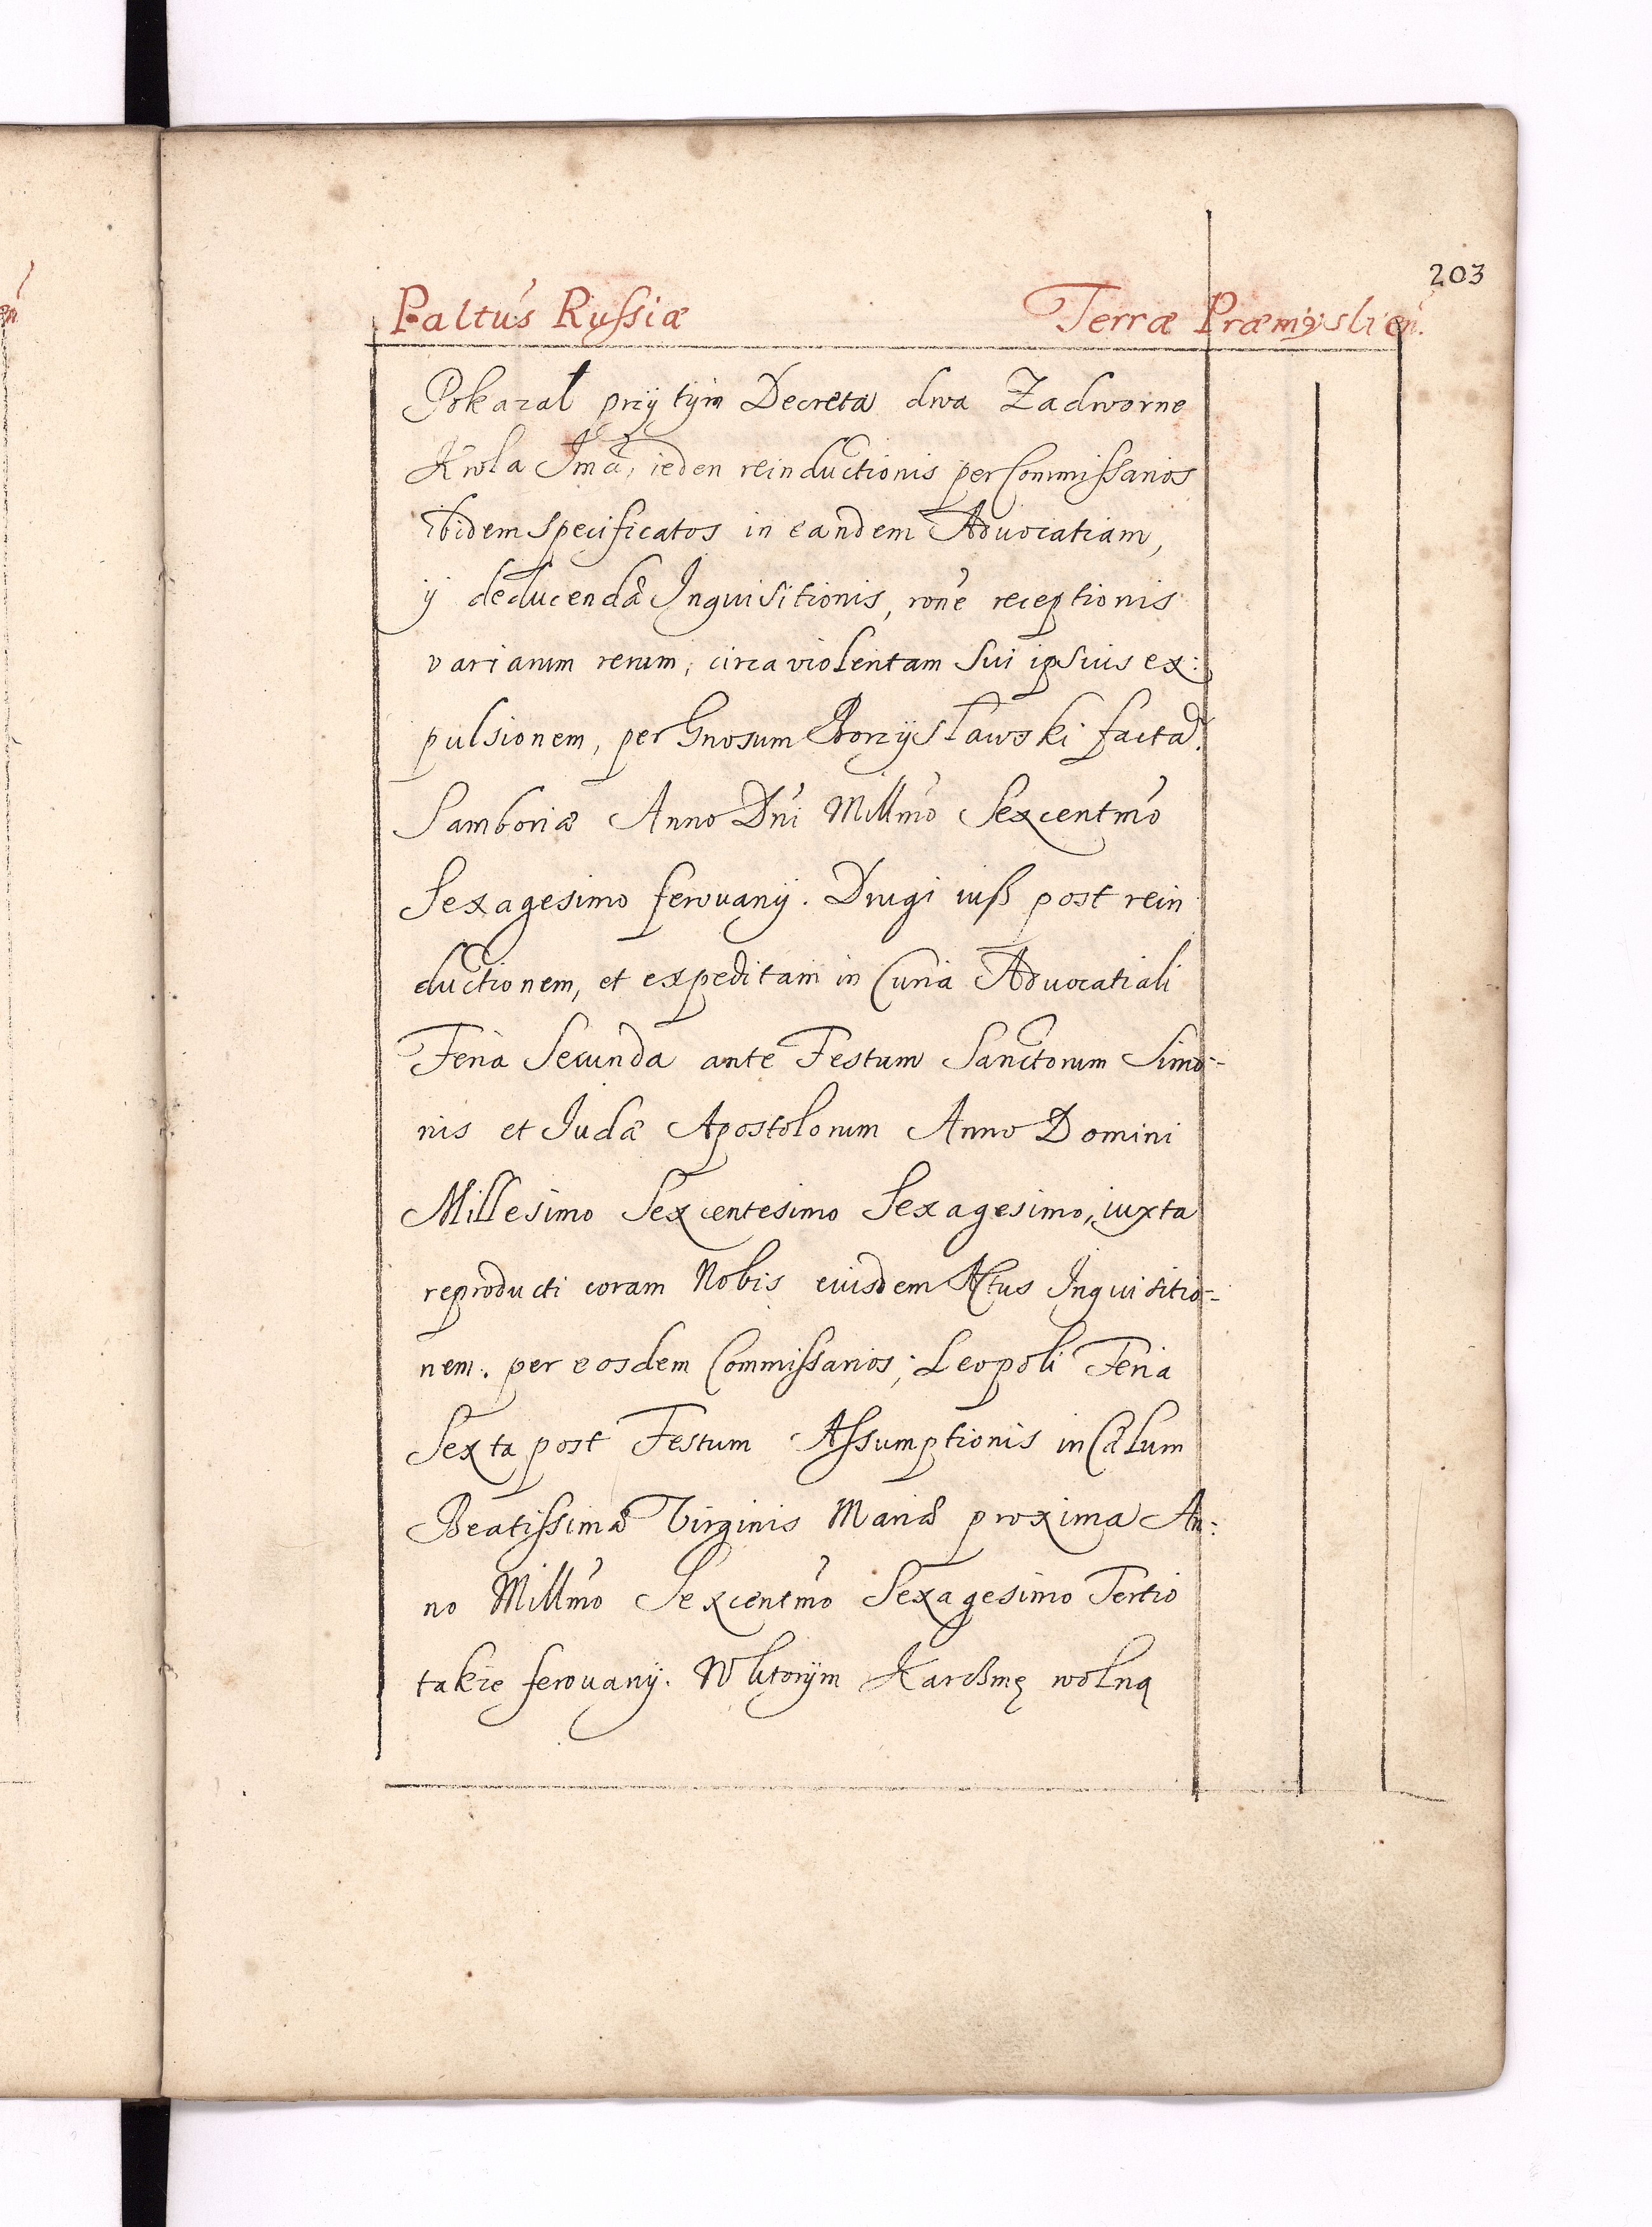 203
Paltús Rußiæ Terræ Præmÿslień.
Pokazał przÿ tÿm Decreta dwa Zadworne
Krola Jmći, ieden reinductionis per Commißarios
ibidem specificatos in eandem Advocatiam,
ÿ deducendæ Inquisitionis, rone receptionis
variarum rerum, circa violentam sui ipsius ex:
pulsionem, per Gnosum Borzÿsławski factæ.
Samboriæ Anno Dni Millmo Sexcentmo
Sexagesimo ferowanÿ. Drugi iuß post rein
ductionem, et expeditam in Curia Advocatiali
Feria Secunda ante Festum Sanctorum Simo=
nis et Judæ Apostolorum Anno Domini
Millesimo Sexcentesimo Sexagesimo, iuxta
reproducti coram Nobis eiusdem Actus Inquisitio=
nem. per eosdem Commißarios; Leopoli Feria
Sexta post Festum Aßumptionis in Cælum
Beatißimæ Virginis Mariæ proxima An:
no Millmo Sexcentmo Sexagesimo Tertio
takze ferowanÿ. W ktorÿm Karcßmę wolną